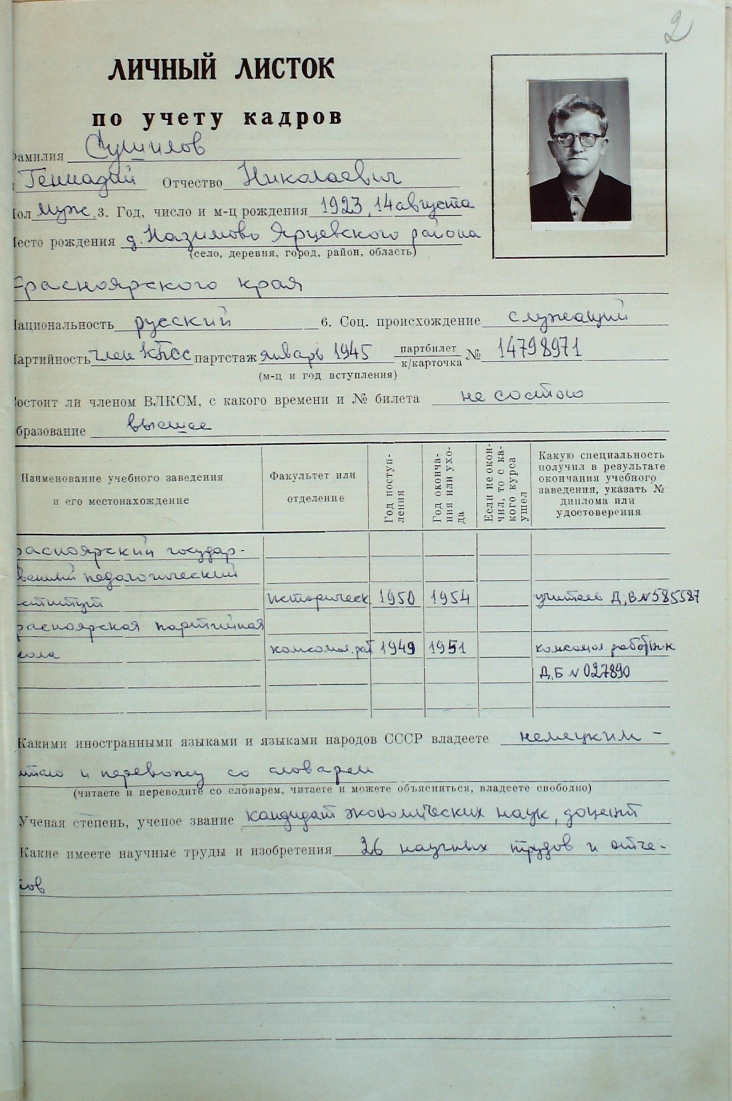 2
ЛИЧНЫЙ ЛИСТОК
по учету кадров
амилия Сушилов
Геннадий Отчество Николаевич
ол муж. 3. Год, число и м-ц рождения 1923, 14 августа
есто рождения д. Назимово Ярцевского района
(село, деревня, город, район, область)
Красноярского края
ациональность русский 6. Соц. происхождение служащий
артийность член КПСС партстаж январь 1945 партбилет к/карточка № 14798971
(м-ц и год вступления)
остоит ли членом ВЛКСМ, с какого времени и № билета не состою
бразование высшее
Наименование учебного заведения и его местонахождение
Факультет или отделение
Год поступления
Год окончания или ухода
Если не окончил, то с какого курса ушел
Какую специальность получил в результате окончания учебного заведения, указать № диплома или удостоверения
расноярский государ-
венный педагогический
ститут историческ 1950 1954 учитель Д,В № 585587
расноярская партийная
кола комсомол. раб 1949 1951 комсомол работник
Д,Б № 027890
Какими иностранными языками и языками народов СССР владеете немецким -
итаю и перевожу со словарем
(читаете и переводите со словарем, читаете и можете объясняться, владеете свободно)
Ученая степень, ученое звание кандидат экономических наук, доцент
Какие имеете научные труды и изобретения 36 научных трудов и отче-
тов